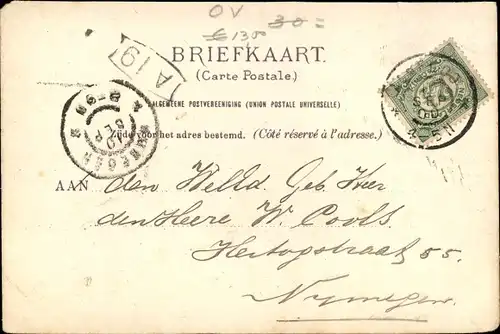 OV 30 =
€ 135
BRIEFKAART.
(Carte Postale.)
A 19
ALGEMEENE POSTVEREENIGING (UNION POSTALE UNIVERSELLE)
Zijde voor het adres bestemd. (Côté réservé à l'adresse.)
AAN den WelEd. Geb. Heer
den Heere W. Pools.
Hertogstraat 55.
Nymegen.